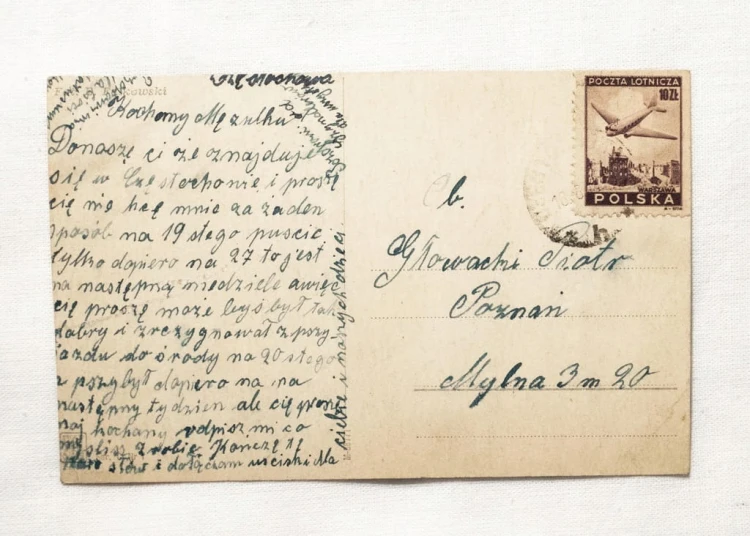 Częstochowa
Kochany Mężulku
Donoszę ci że znajduje
się w Częstochowie i proszę
cię nie hcę mnie za żaden
sposób na 19 stego puście
tylko dopiero na 27 to jest
na następną niedziele a więc
cię proszę może byś był tak
dobry i zrezygnował z przy
jazdu do środy na 20 stego
a pszybył dopiero na na
następny tydzien ale cię proszę
mój kochany odpisz mi co
myślisz zrobic Kończę tę
słów i dołączam uściski dla
ciebie i naszych dzieci
POCZTA LOTNICZA
10 ZŁ
WARSZAWA
POLSKA
Ob.
Głowacki Piotr
Poznań
Mylna 3 m 20